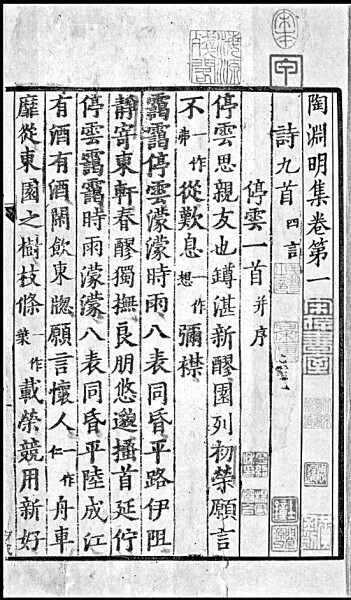 陶淵明集卷第一
詩九首 四言
停雲一首 并序
停雲思親友也罇湛新醪園列初榮願言
不 一作弗 從歎息 一作想 彌襟
靄靄停雲濛濛時雨八表同昏平路伊阻
靜寄東軒春醪獨撫良朋悠邈搔首延佇
停雲靄靄時雨濛濛八表同昏平陸成江
有酒有酒閑飲東牕願言懷人 一作仁 舟車
靡從東園之樹枝條 一作葉 載榮競用新好